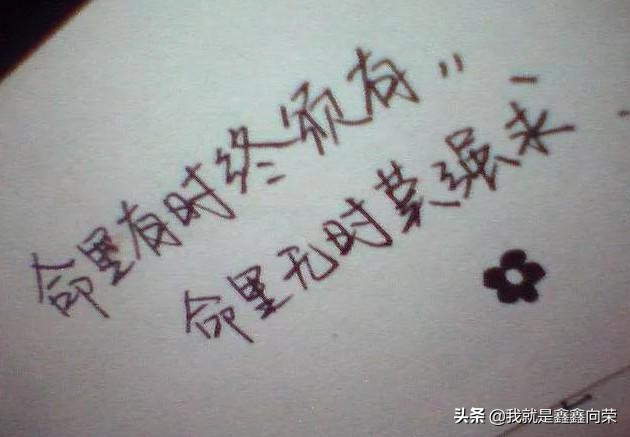 命里有时终须有
命里无时莫强求
头条 @我就是鑫鑫向荣